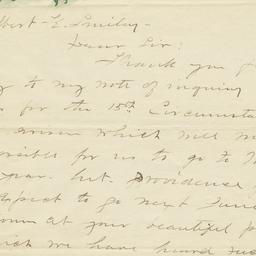 lbert K. Smiley-
Dear Sir:
Thank you f
y to my note of inquiry
s for the 15th Circumsta
arisen which will m
possible for us to go to
year. but Providence
expect to go next June
at your beautiful p
ich we have heard